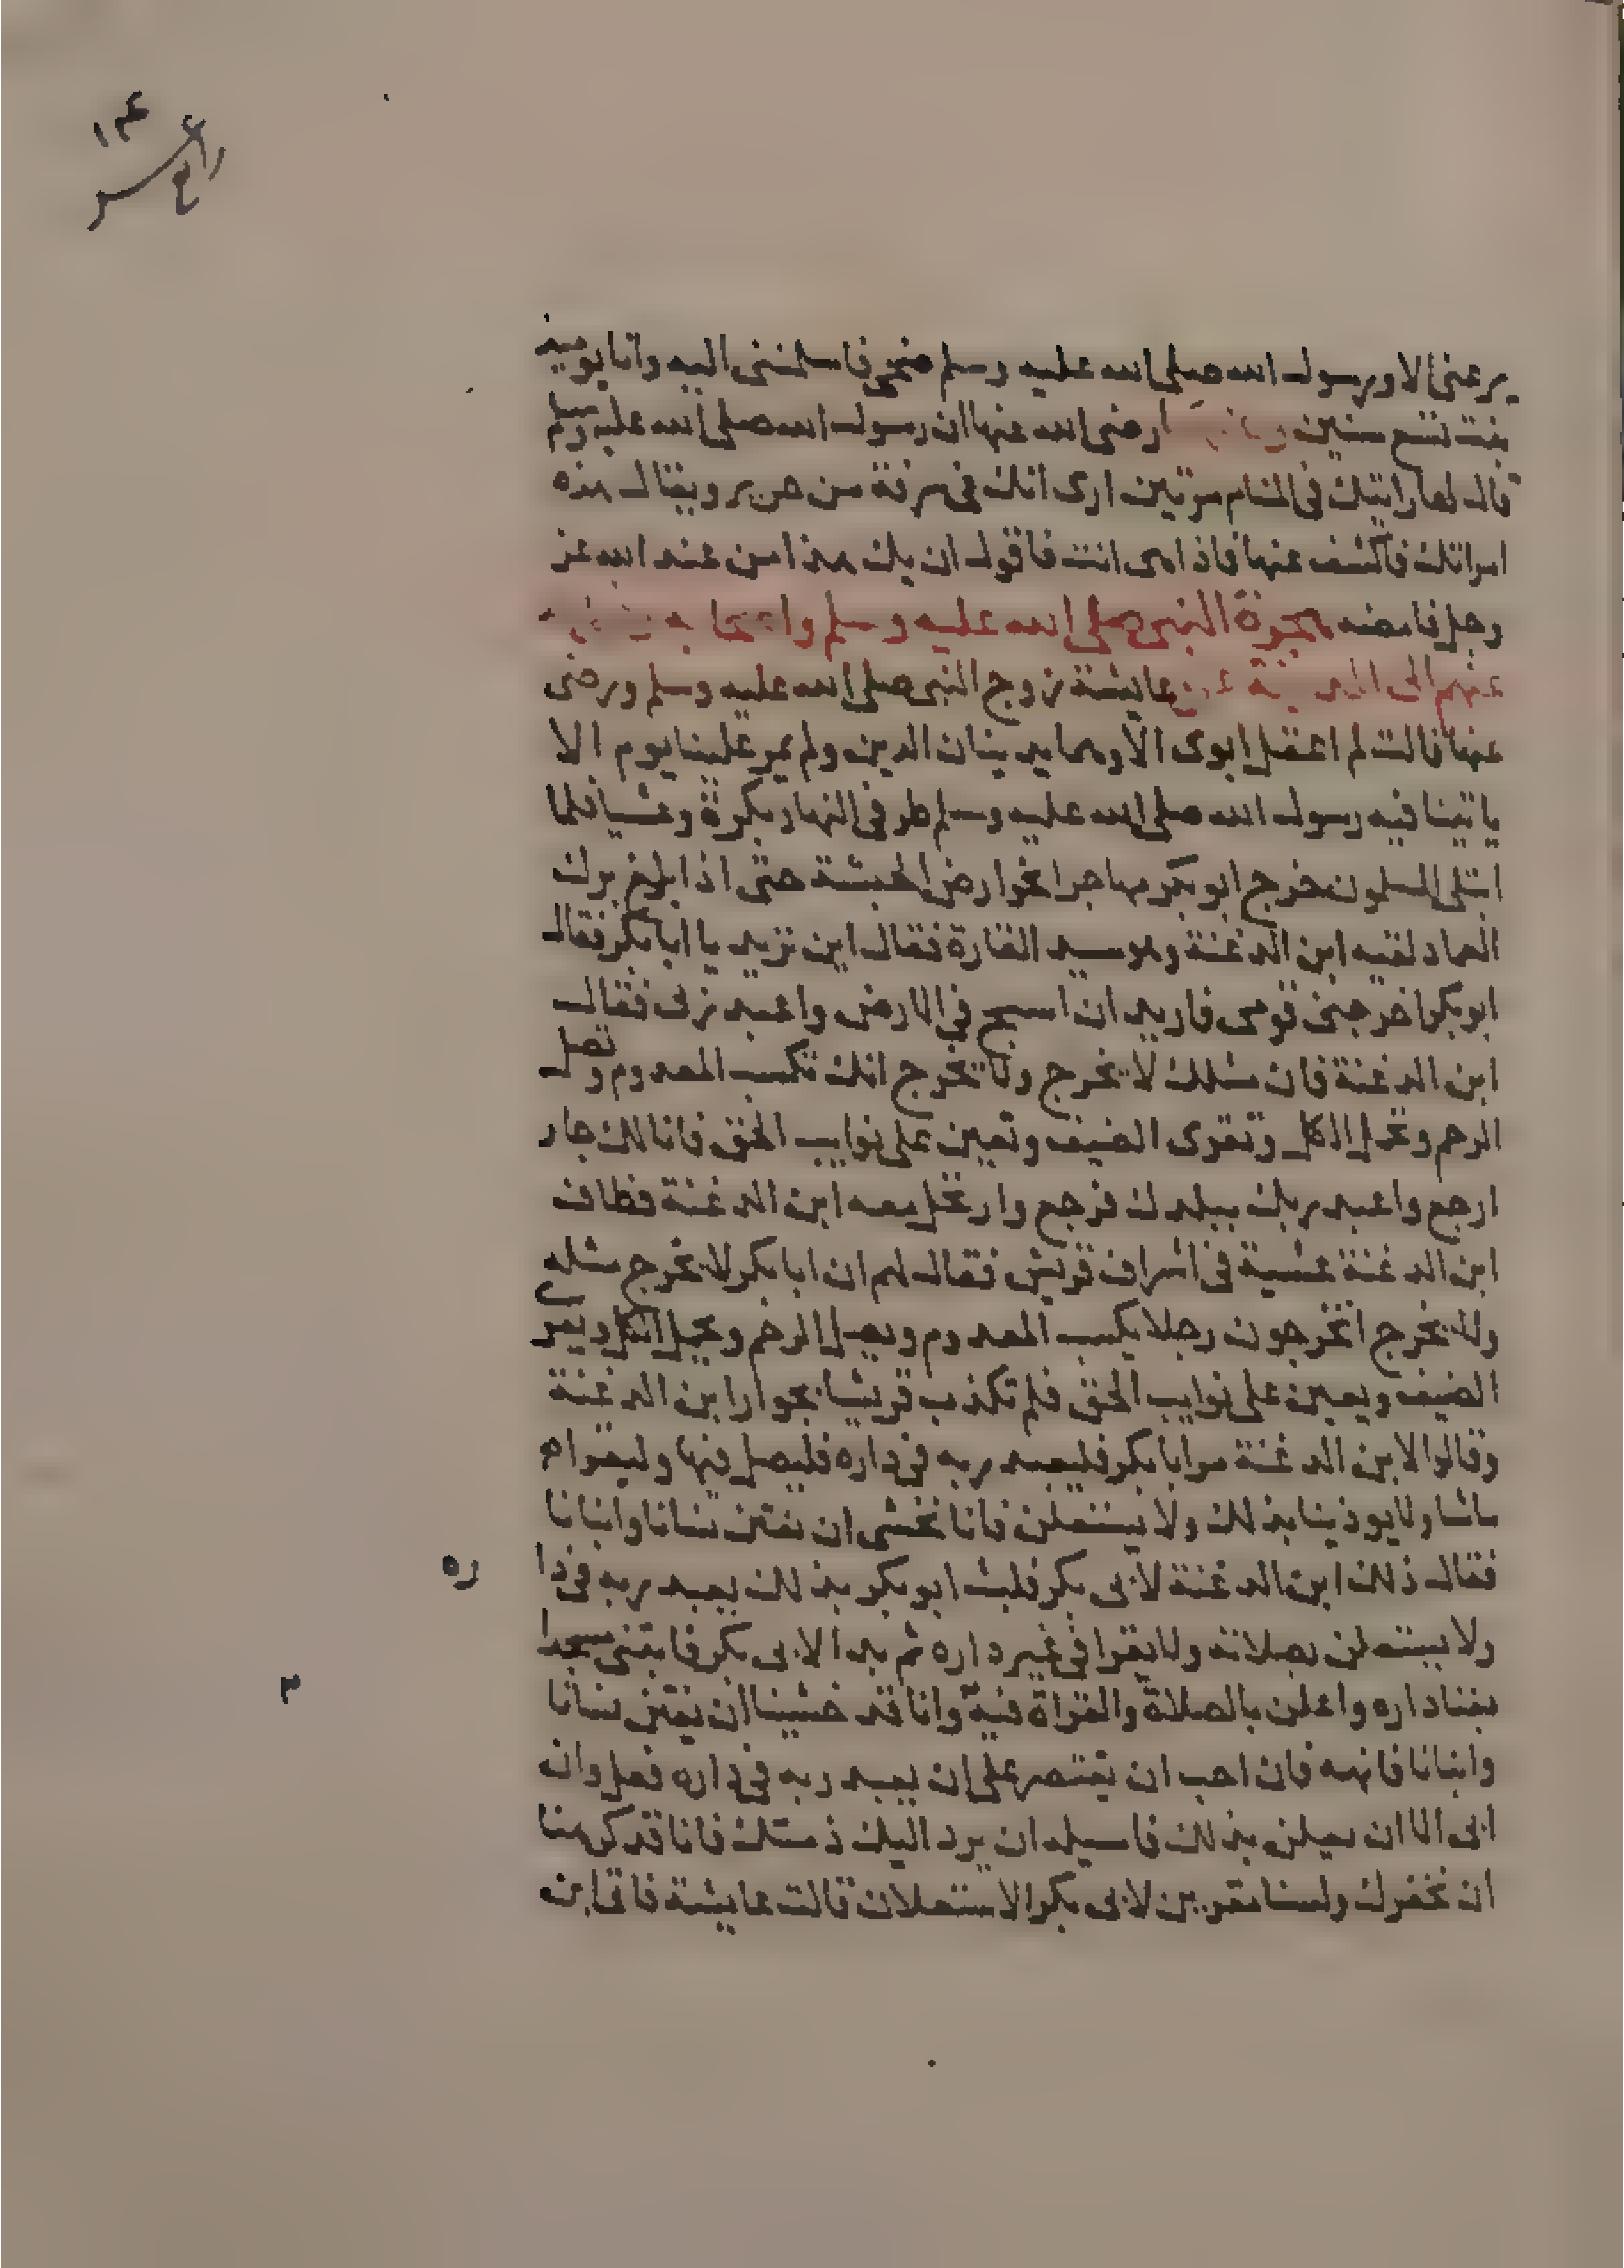 ١٤
رابع عشر
يرعنى الا ورسول الله صلى الله عليه وسلم ضحى فاسلمننى اليه وانا يوميذ
بنت تسع سنين رضى الله عنها ان رسول الله صلى الله عليه وسلم
قال لها رايتك فى المنام مرتين ارى انك فى سرقة من حرير ويقال هذه
امراتك فاكشف عنها فاذا هى انت فاقول ان يك هذا من عند الله عز
وجل فامضه هجرة النبى صلى الله عليه وسلم واصحابه رضى الله
عنهم الى المدينة عن عايشة زوج النبى صلى الله عليه وسلم ورضى
عنها قالت لم اعقل ابوى الا وهما يدينان الدين ولم يمر علينا يوم الا
ياتينا فيه رسول الله صلى الله عليه وسلم طرفى النهار بكرة وعشيا فلما
ابتلى المسلمون خرج ابو بكر مهاجرا نحو ارض الحبشة حتى اذا بلغ برك
الغماد لقيه ابن الدغنة وهو سيد القارة فقال اين تريد يا ابا بكر فقال
ابو بكر اخرجنى قومى فاريد ان اسيح فى الارض واعبد ربى فقال
ابن الدغنة فان مثلك لا يخرج ولا يخرج انك تكسب المعدوم وتصل
الرحم وتحمل الكل وتقرى الضيف وتعين على نوايب الحق فانا لك جار
ارجع واعبد ربك ببلدك فرجع وارتحل معه ابن الدغنة فطاف
ابن الدغنة عشية فى اشراف قريش فقال لهم ان ابا بكر لا يخرج مثله
ولا يخرج اتخرجون رجلا يكسب المعدوم ويصل الرحم ويحمل الكل ويقرى
الضيف ويعين على نوايب الحق فلم تكذب قريشا بجوار ابن الدغنة
وقالوا لابن الدغنة مر ابا بكر فليعبد ربه فى داره فليصل فيها وليقرا
ماشا ولا يوذينا بذلك ولا يستعلن فانا نخشى ان يفتن نسانا وابنانا
فقال ذلك ابن الدغنة لابى بكر فلبث ابو بكر بذلك يعبد ربه فى داره
ولا يستعلن بصلاته ولا يقرا فى غير داره ثم بدا لابى بكر فابتنى مسجدا
بفنا داره واعلن بالصلاة والقراة فيه وانا قد خشينا ان يفتن نسانا
وابنانا فانهه فان احب ان يقتصر على ان يعبد ربه فى داره فعل وان
ابى الا ان يعلن بذلك فاسيله ان يرد اليك ذمتك فانا قد كرهنا
ان نخفرك ولسنا مقرين لابى بكر الاستعلان قالت عايشة فاتى ابن